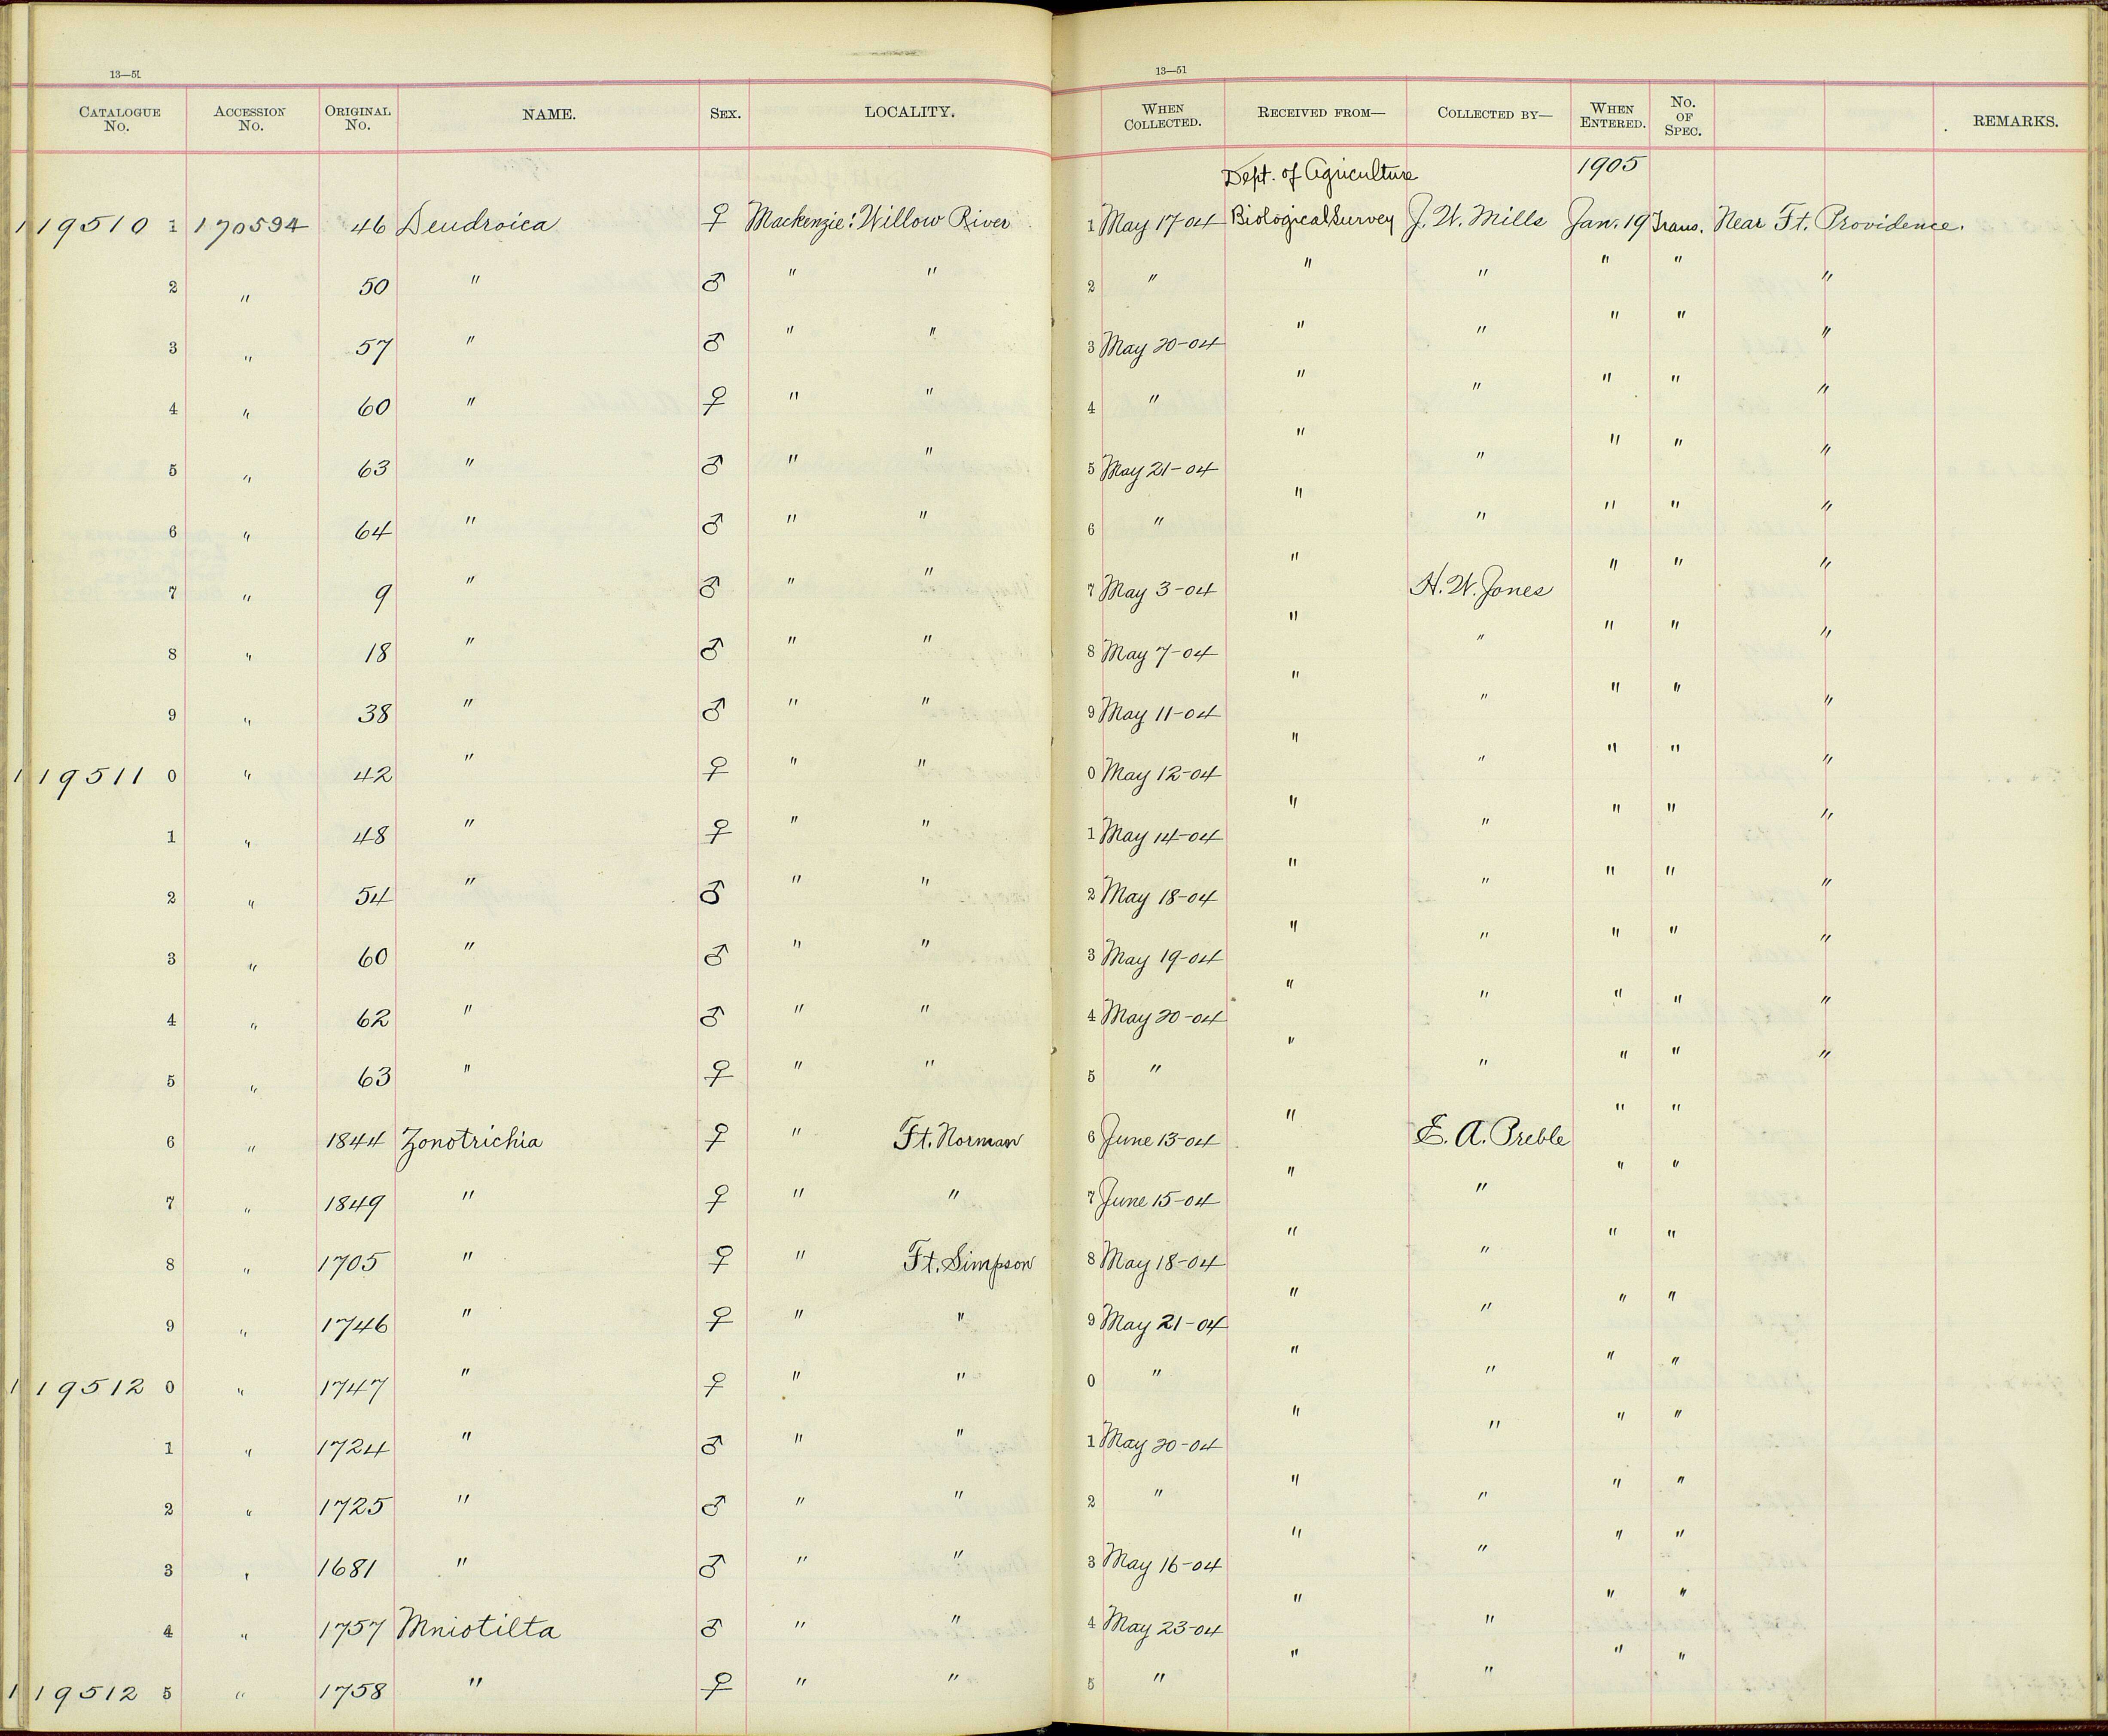 13—51 13—51
CATALOGUE No. ACCESSION No. ORIGINAL No. NAME. SEX. LOCALITY. WHEN COLLECTED. RECEIVED FROM— COLLECTED BY— WHEN ENTERED. No. OF SPEC. REMARKS.
Dept. of Agriculture 1905
119510 1 170594 46 Dendroica ♀ Mackenzie: Willow River 1 May 17-04 Biological Survey J. W. Mills Jan. 19 Trans. Near Ft. Providence.
2 " 50 " ♂ " " 2 " " " " " "
3 " 57 " ♂ " " 3 May 20-04 " " " " "
4 " 60 " ♀ " " 4 " " " " " "
5 " 63 " ♂ " " 5 May 21-04 " " " " "
6 " 64 " ♂ " " 6 " " " " " "
7 " 9 " ♂ " " 7 May 3-04 " H. W. Jones " " "
8 " 18 " ♂ " " 8 May 7-04 " " " " "
9 " 38 " ♂ " " 9 May 11-04 " " " " "
119511 0 " 42 " ♀ " " 0 May 12-04 " " " " "
1 " 48 " ♀ " " 1 May 14-04 " " " " "
2 " 54 " ♂ " " 2 May 18-04 " " " " "
3 " 60 " ♂ " " 3 May 19-04 " " " " "
4 " 62 " ♂ " " 4 May 20-04 " " " " "
5 " 63 " ♀ " " 5 " " " " " "
6 " 1844 Zonotrichia ♀ " Ft. Norman 6 June 13-04 " E. A. Preble " "
7 " 1849 " ♀ " " 7 June 15-04 " " " "
8 " 1705 " ♀ " Ft. Simpson 8 May 18-04 " " " "
9 " 1746 " ♀ " " 9 May 21-04 " " " "
119512 0 " 1747 " ♀ " " 0 " " " " "
1 " 1724 " ♂ " " 1 May 20-04 " " " "
2 " 1725 " ♂ " " 2 " " " " "
3 " 1681 " ♂ " " 3 May 16-04 " " " "
4 " 1757 Mniotilta ♂ " " 4 May 23-04 " " " "
119512 5 " 1758 " ♀ " " 5 " " " " "